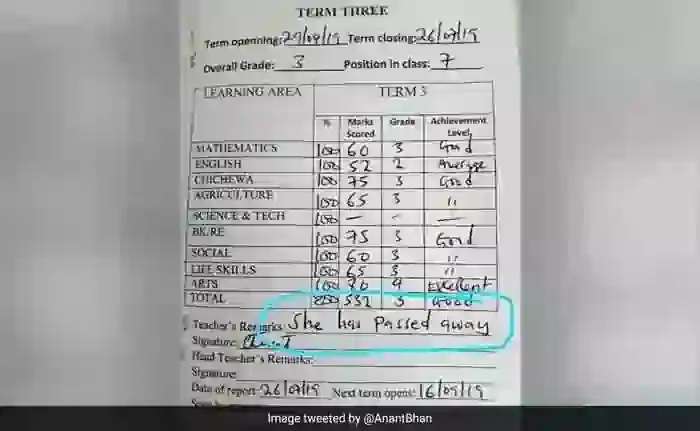 TERM THREE
Term openning: 29/04/19 Term closing: 26/07/19
Overall Grade: 3 Position in class: 7
LEARNING AREA TERM 3
% Marks Scored Grade Achievement Level
MATHEMATICS 100 60 3 Good
ENGLISH 100 52 2 Average
CHICHEWA 100 75 3 Good
AGRICULTURE 100 65 3 "
SCIENCE & TECH 100 — — —
BK/RE 100 75 3 Good
SOCIAL 100 60 3 "
LIFE SKILLS 100 65 3 "
ARTS 100 80 4 Excellent
TOTAL 532 3 Good
Teacher's Remarks: She has Passed away
Signature:
Head Teacher's Remarks:
Signature:
Date of report: 26/07/19 Next term opens: 16/09/19
Image tweeted by @AnantBhan